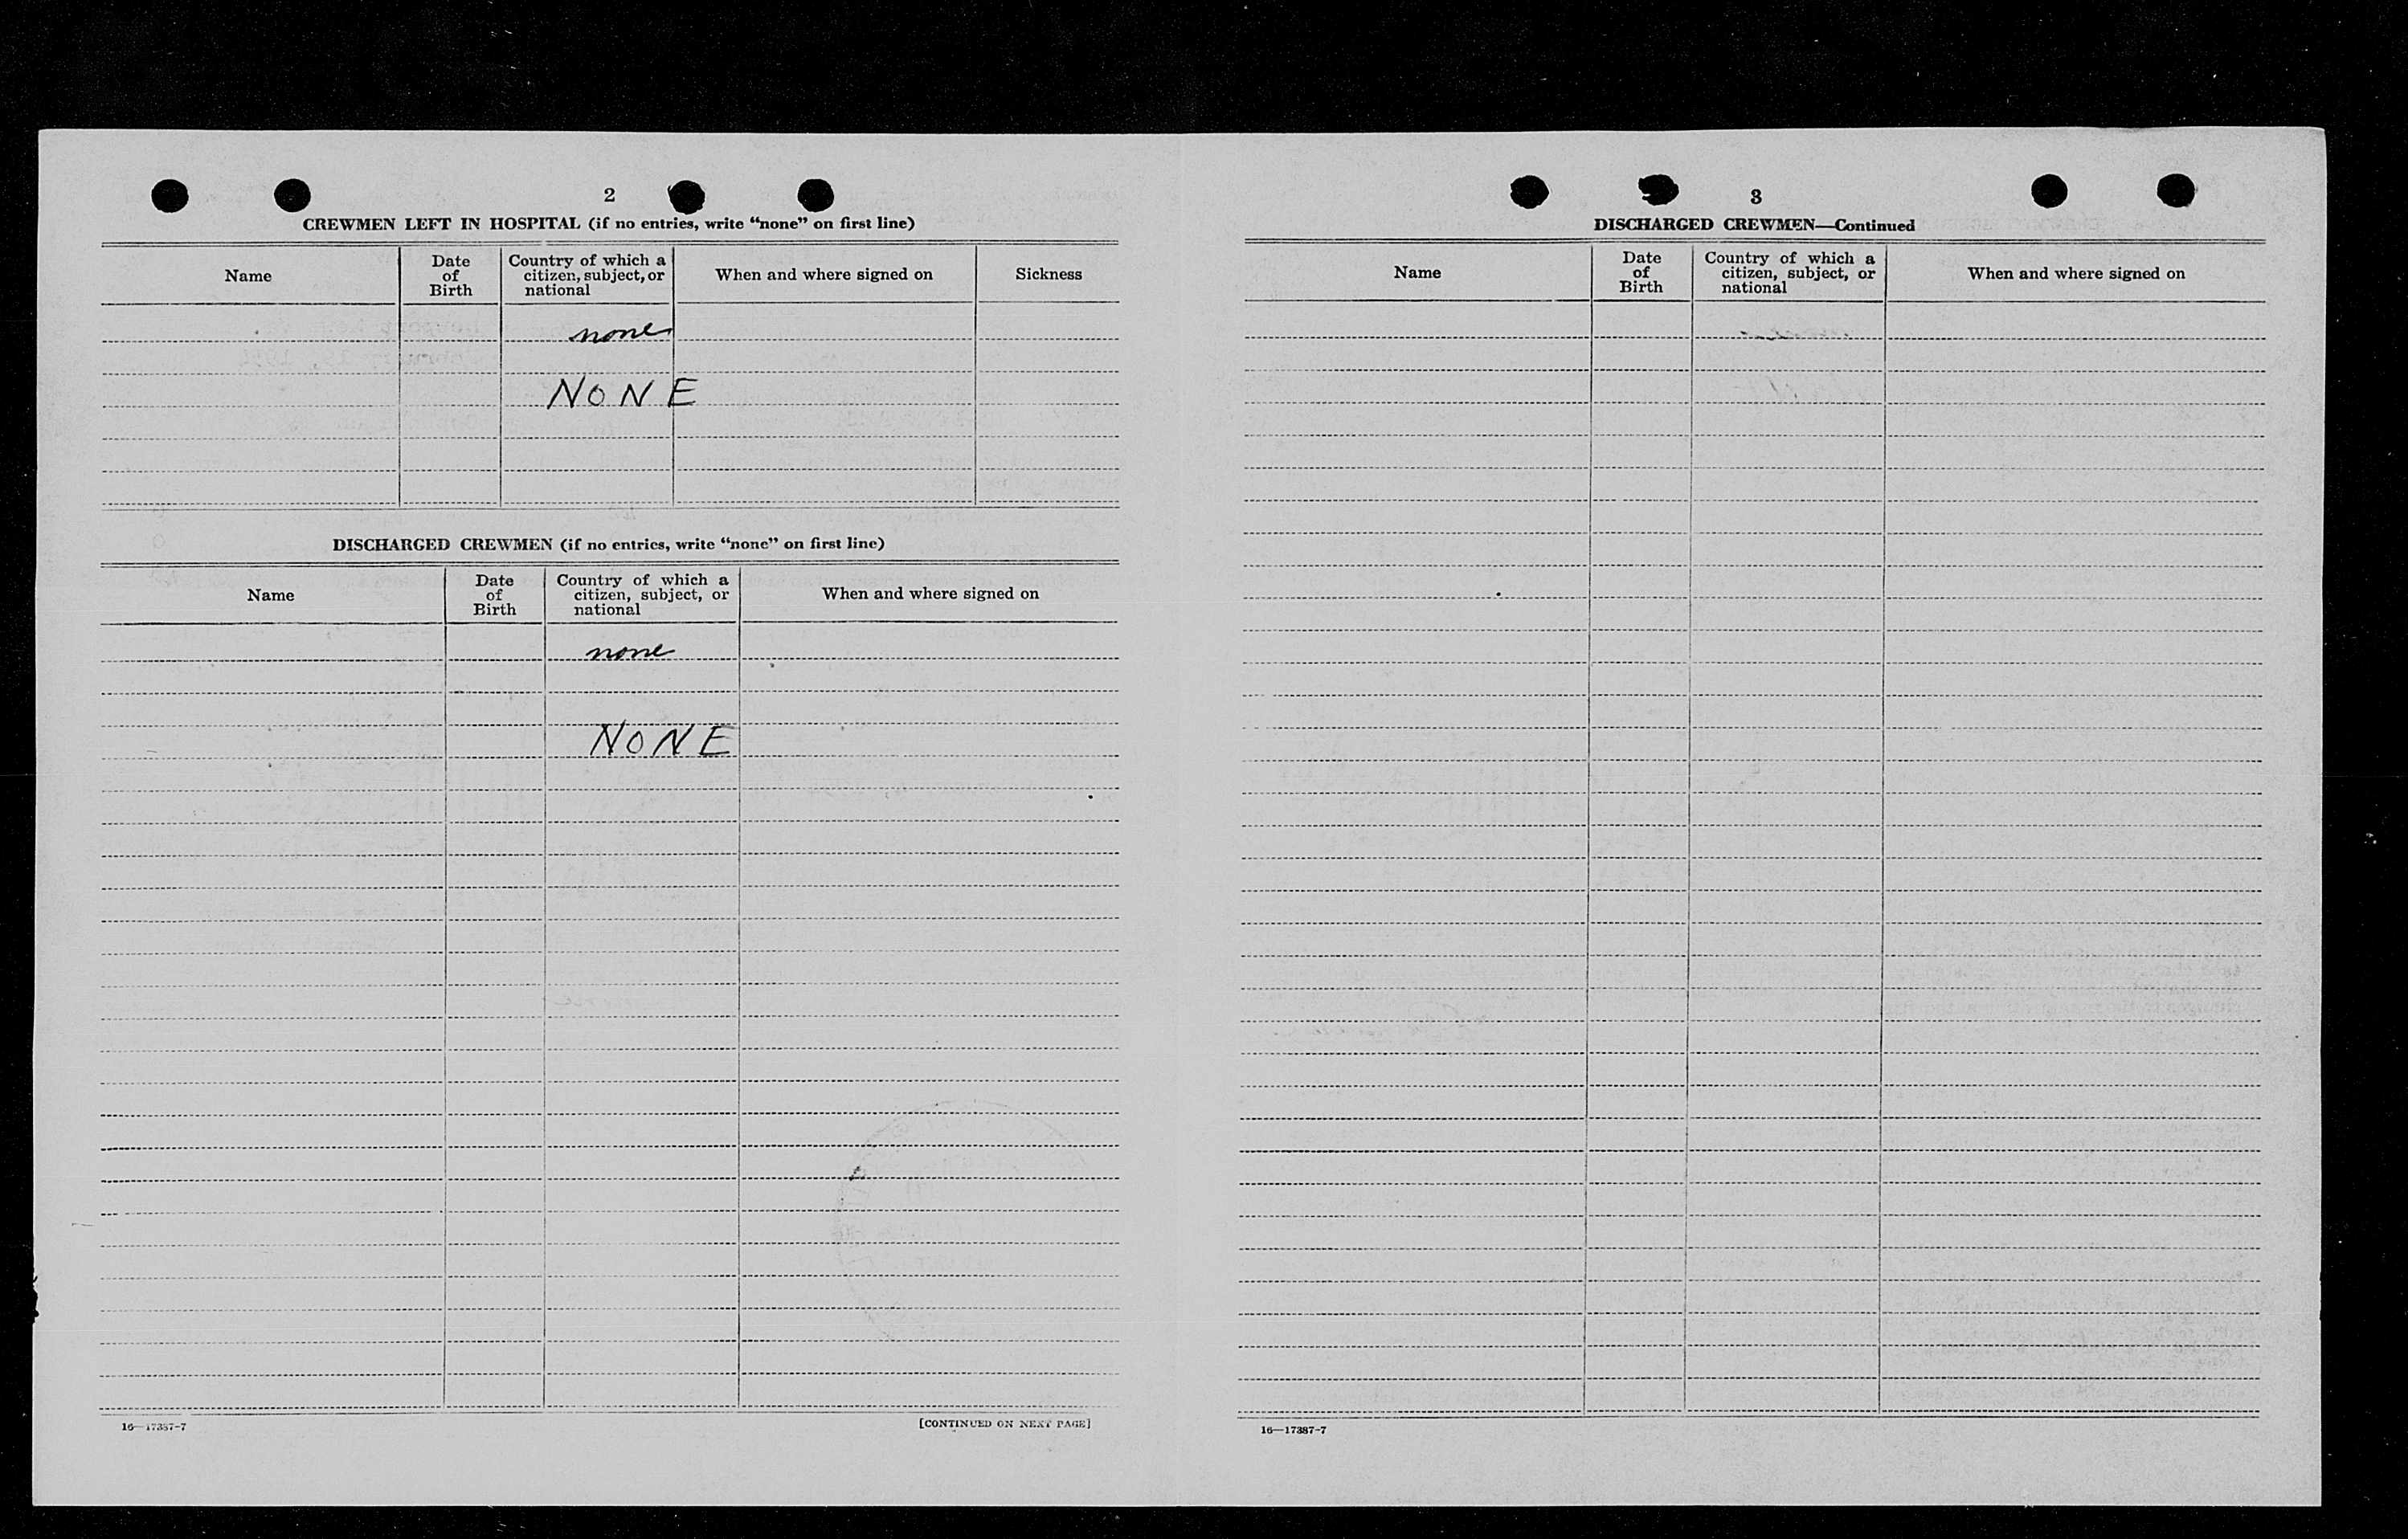 2
CREWMEN LEFT IN HOSPITAL (if no entries, write "none" on first line)
Name
Date of Birth
Country of which a citizen, subject, or national
When and where signed on
Sickness
none
NONE
DISCHARGED CREWMEN (if no entries, write "none" on first line)
Name
Date of Birth
Country of which a citizen, subject, or national
When and where signed on
none
NONE
16—17387-7
[CONTINUED ON NEXT PAGE]
3
DISCHARGED CREWMEN—Continued
Name
Date of Birth
Country of which a citizen, subject, or national
When and where signed on
16—17387-7